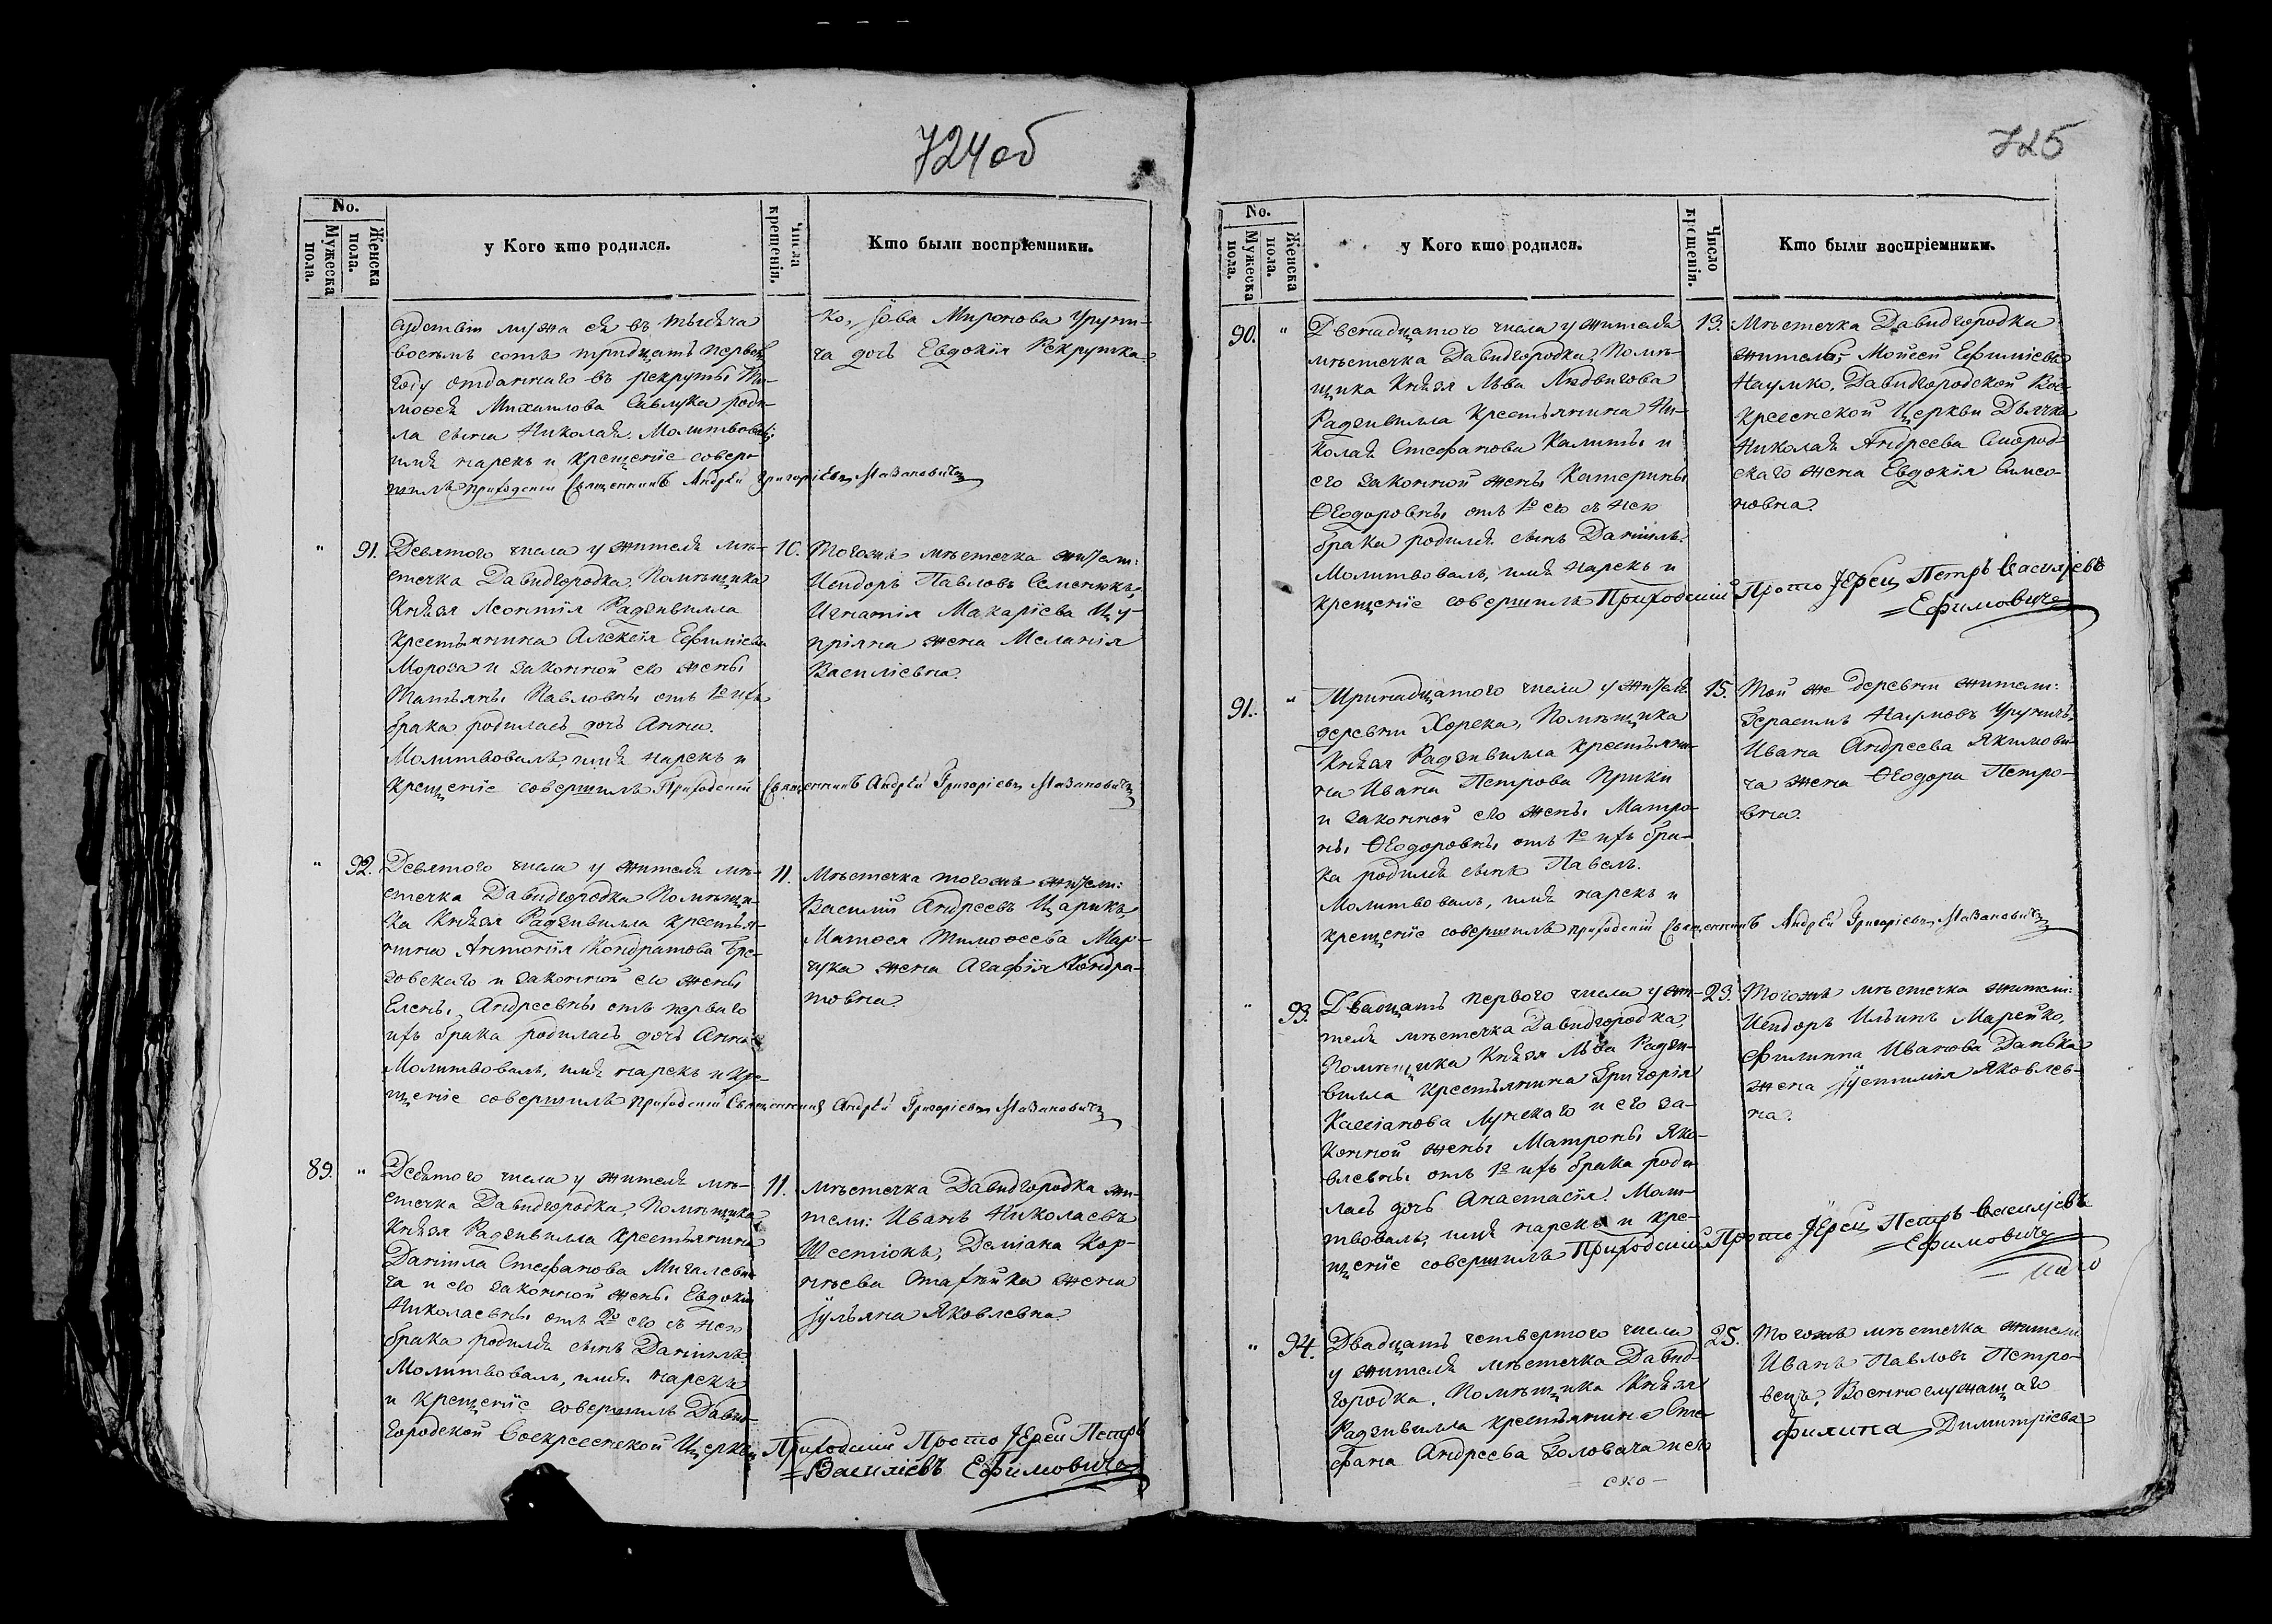 724 об
No.
Мужеска пола.
Женска пола.
у Кого кто родился.
Числа крещенія.
Кто были воспріемники.
мужа ея въ тысяча
восемъ сотъ тридцать первомъ
году отданнаго въ рекруты Ти-
моѳея Михаилова роди-
ла сына Николая. Молитвовалъ,
имя нарекъ и крещеніе совер-
шилъ приходскій Священникъ Андрей Григоріевъ Мазановичъ
ко, Іова Миронова
ча дочь Евдокія Рекрутка.
" 91. Девятого числа у жителя мѣ-
стечка Давидгородка, Помѣщика
Князя Леонтія Радзивилла
крестьянина Алексія Ефиміева
Мороза и законной его жены
Татьяны Павловны отъ 1го ихъ
брака родилась дочь Анна.
Молитвовалъ, имя нарекъ и
крещеніе совершилъ Приходскій Священникъ Андрей Григоріевъ Мазановичъ
10. Тогожъ мѣстечка жители:
Исидоръ Павловъ Семенюкъ,
Игнатія Макаріева Цу-
пріяна жена Меланія
Василіевна.
" 92. Девятого числа у жителя мѣ-
стечка Давидгородка Помѣщи-
ка Князя Радзивилла крестья-
нина Антонія Кондратова Бре-
зовскаго и законной его жены
Елены Андреевны отъ перваго
ихъ брака родилась дочь Анна
Молитвовалъ, имя нарекъ и кре-
щеніе совершилъ приходскій Священникъ Андрей Григоріевъ Мазановичъ
11. Мѣстечка тогожъ жители:
Василій Андреевъ Царикъ,
Матѳея Тимоѳеева Мар-
чука жена Агафія Кондра-
товна.
89. " Девятого числа у жителя мѣ-
стечка Давидгородка, Помѣщика
Князя Радзивилла крестьянина
Даніила Стефанова Мигалеви-
ча и его законной жены Евдокіи
Николаевны отъ 2го его съ нею
брака родился сынъ Даніилъ.
Молитвовалъ, имя нарекъ
и крещеніе совершилъ Давид-
городской Воскресенской Церкви Приходскій Протоіерей Петръ
Василіевъ Ефимовичъ
11. мѣстечка Давидгородка жи-
тели: Иванъ Николаевъ
Шестіокъ, Даміана Кор-
нѣева жена
Іульяна Яковлевна.
725
No.
Мужеска пола.
Женска пола.
у Кого кто родился.
Число крещенія.
Кто были воспріемники.
90. " Двенадцатого числа у жителя
мѣстечка Давидгородка, Помѣ-
щика Князя Льва Людвигова
Радзивилла крестьянина Ни-
колая Стефанова Калиты и
его законной жены Катерины
Ѳеодоровны отъ 1го его съ нею
брака родился сынъ Даніилъ.
Молитвовалъ, имя нарекъ и
крещеніе совершилъ Приходскій Протоіерей Петръ Василіевъ
Ефимовичъ
13. Мѣстечка Давидгородка
житель, Мойсей Ефиміевъ
Наумко, Давидгородской Вос-
кресенской Церкви Дьячка
Николая Андреева
скаго жена Евдокія Симео-
новна.
91. " Тринадцатого числа у жителя
деревни Хорска, Помѣщика
Князя Радзивилла крестьяни-
на Ивана Петрова
и законной его жены Матро-
ны Ѳеодоровны, отъ 1го ихъ бра-
ка родился сынъ Павелъ.
Молитвовалъ, имя нарекъ и
крещеніе совершилъ приходскій Священникъ Андрей Григоріевъ Мазановичъ
15. Той же деревни жители:
Герасимъ Наумовъ
Ивана Андреева Якимови-
ча жена Ѳеодора Петро-
вна.
" 93. Двадцать первого числа у жи-
теля мѣстечка Давидгородка,
Помѣщика Князя Льва Радзи-
вилла крестьянина Григорія
Кассіанова Лунскаго и его за-
конной жены Матроны Яко-
влевны отъ 1го ихъ брака роди-
лась дочь Анастасія. Моли-
твовалъ, имя нарекъ и кре-
щеніе совершилъ Приходскій Протоіерей Петръ Василіевъ
Ефимовичъ
23. Тогожъ мѣстечка жители:
Исидоръ Ильинъ Марейко,
Филиппа Иванова Данька
жена Іустинія Яковлев-
на.
" 94. Двадцать четвертого числа
у жителя мѣстечка Давид-
городка, Помѣщика Князя
Радзивилла крестьянина Сте-
фана Андреева Головача и его
25. Тогожъ мѣстечка жители
Иванъ Павловъ Петро-
вецъ, Военнослужащаго
Филипа Димитріева